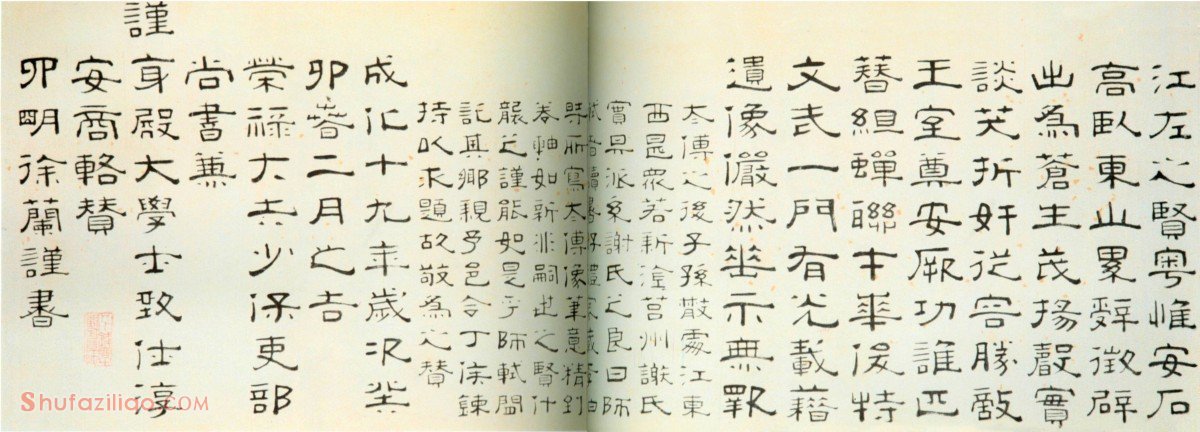 江左之賢粵惟安石
高臥東山累辭徵辟
出為蒼生茂揚聲實
談笑折奸從容勝敵
王室奠安厥功誰匹
簪組蟬聯才華俊特
文武一門有光載籍
遺像儼然垂示無斁
太傅之後子孫散處江東
西甚眾若新淦莒州謝氏
實其派系謝氏之良曰師
軾
時所寫太傅像筆意精到
卷軸如新非嗣世之賢什
襲之謹能如是乎師軾間
託其鄉親予邑令丁侯鍊
持以求題故敬為之贊
成化十九年歲次癸
卯春二月之吉
榮祿大夫少保吏部
尚書兼
謹身殿大學士致仕淳
安商輅贊
四明徐蘭謹書
Shufaziliao.COM